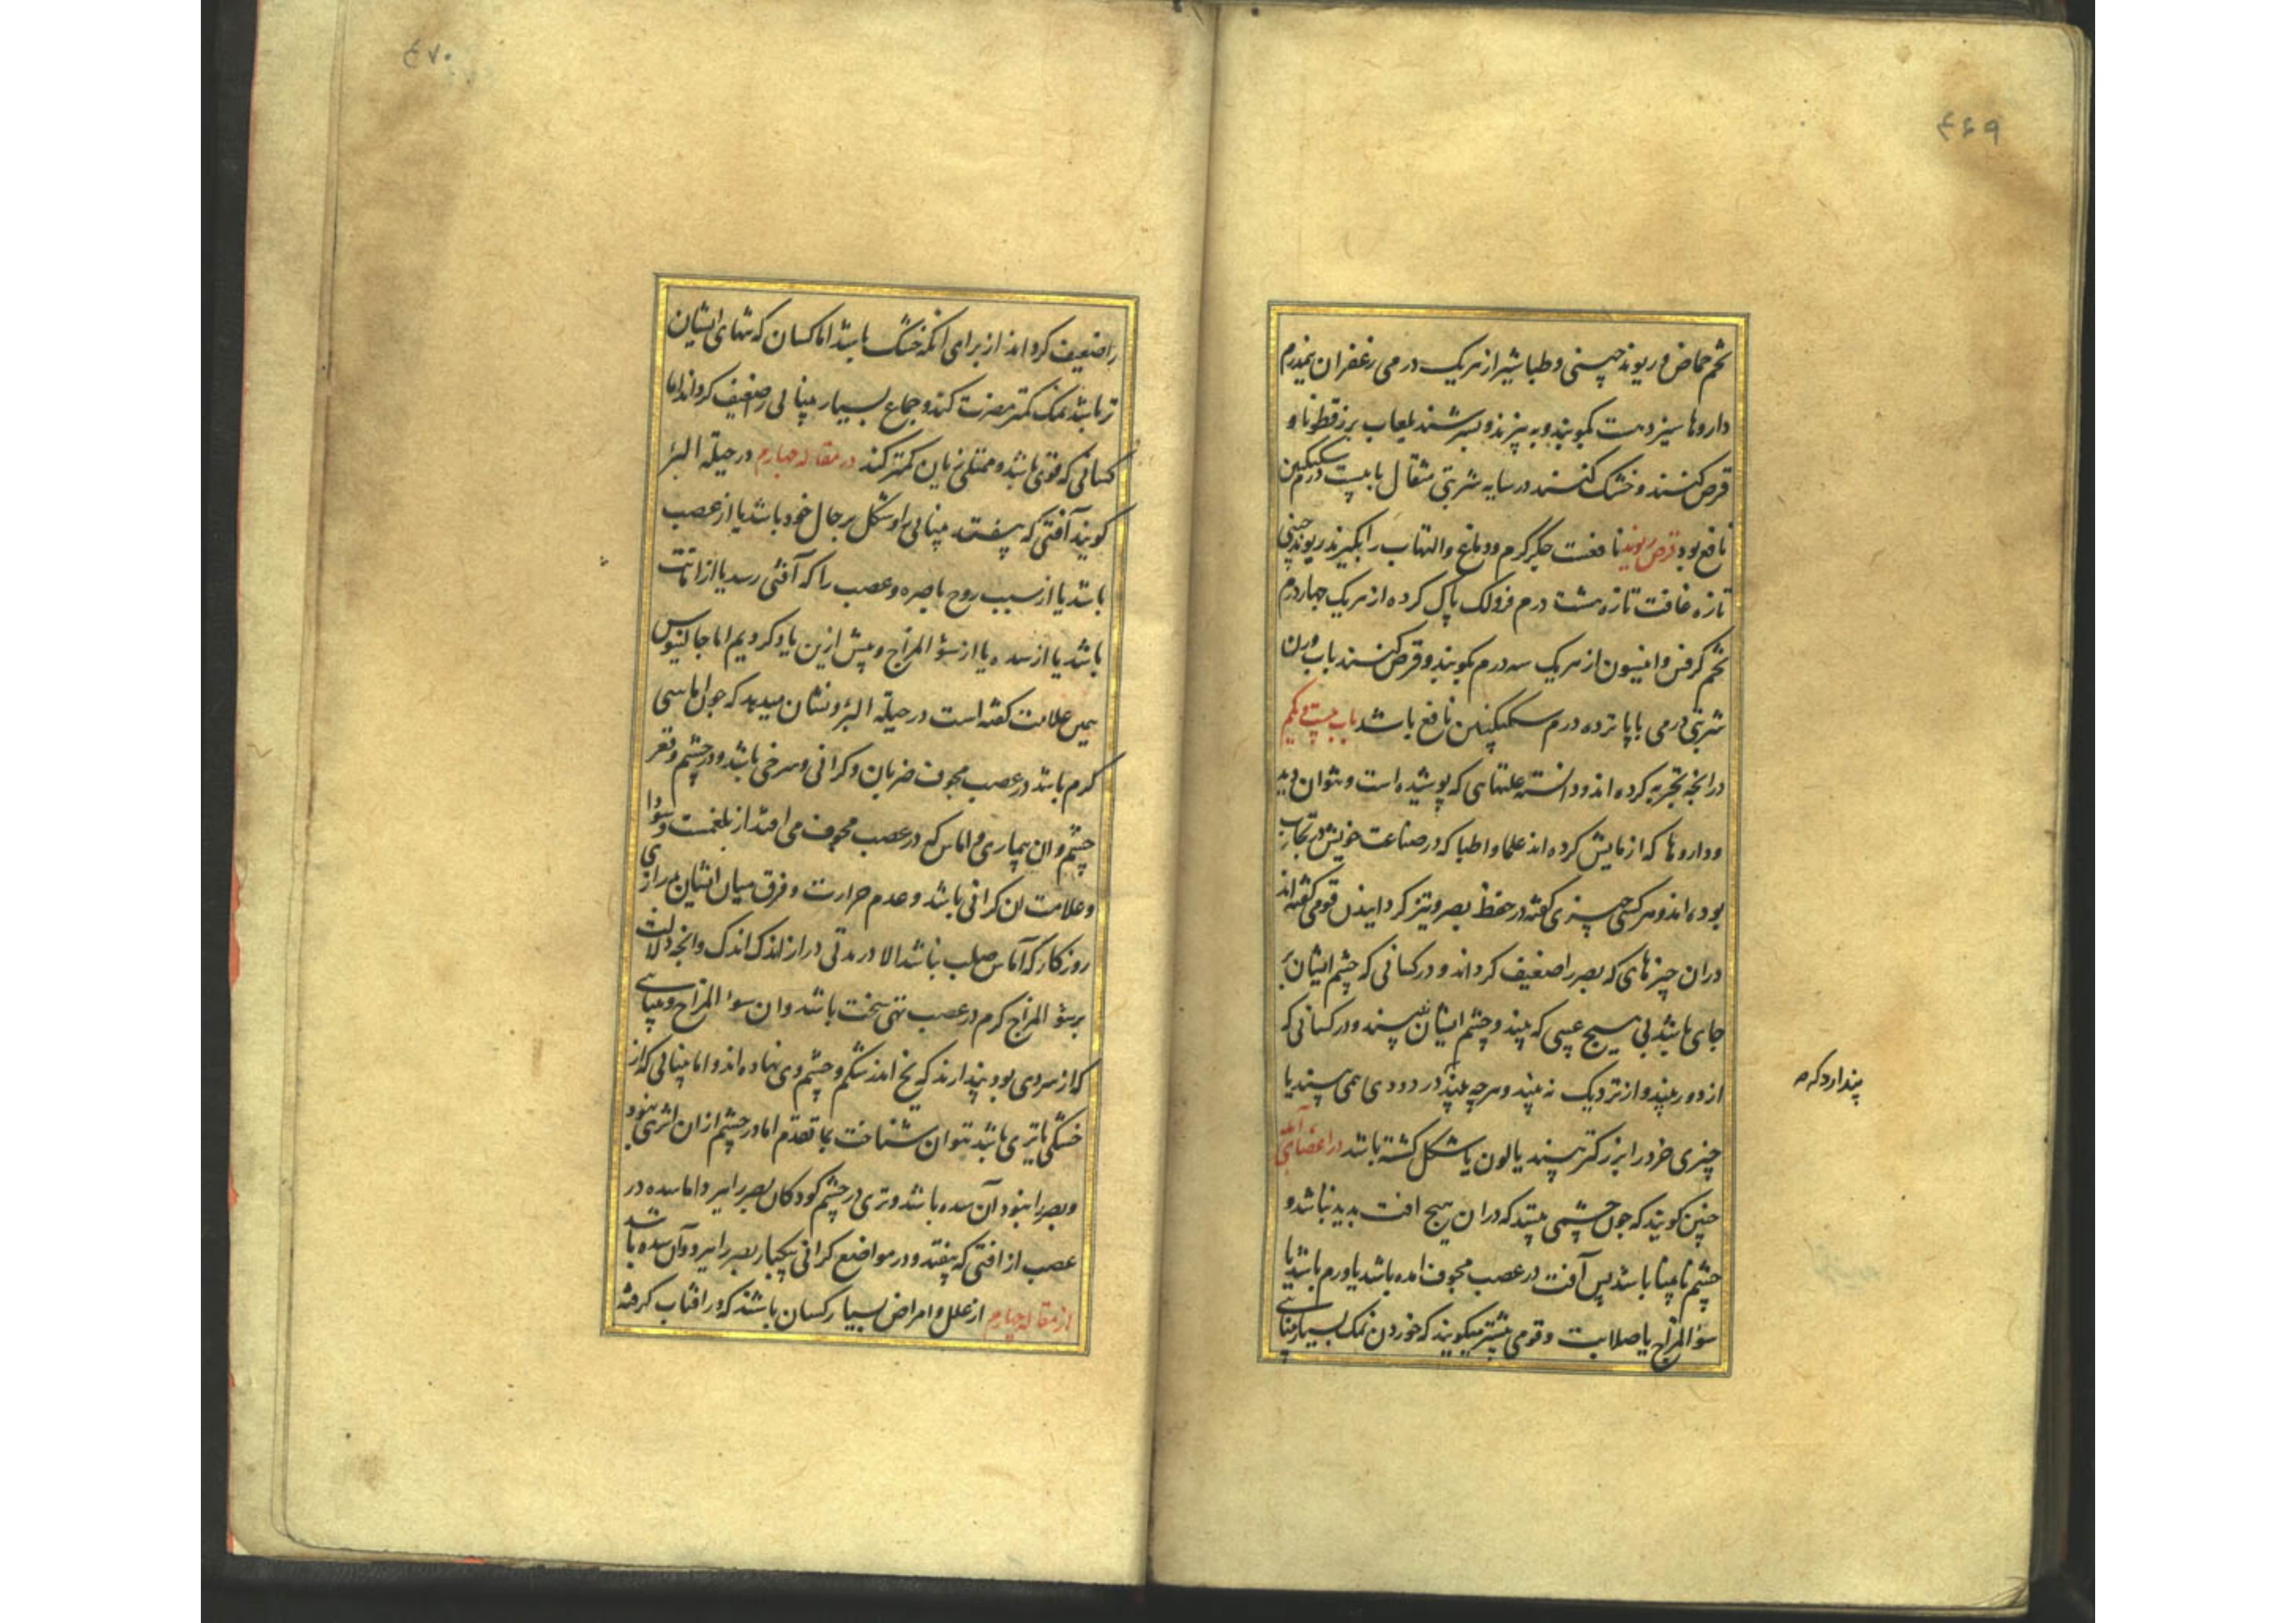 ۴۶۹
تخم حماض و ریوند چینی و طباشیر از هریک درمی زعفران نیمدرم
داروها سیزدهست بکوبند و به بیزند و بسرشند بلعاب بزرقطونا و
قرص کنند و خشک کنند در سایه شربتی مثقال با بیست درم سکنگبین
نافع بود قرص ریوند نافعست جگر گرم و دماغ و التهاب را بگیرند ریوند چینی
تازه غافت تازه هشت درم فو لک پاک کرده از هریک چهار درم
تخم کرفس و انیسون از هریک سه درم بکوبند و قرص کنند باب وزن
شربتی درمی با پانزده درم سکنگبین نافع باشد باب بیست و یکم
در آنچه تجربه کرده اند و دانسته علتهایی که پوشیده است و نتوان دید
و داروها که ازمایش کرده اند علما و اطبا که در صناعت خویش در تجارب
بوده اند و هرکسی چیزی گفته در حفظ بصر و تیز کردانیدن قومی گفته اند
دران چیزهای که بصر را ضعیف کرداند و در کسانی که چشم ایشان بر
جای باشد بی هیچ عیبی که بیند و چشم ایشان نبیند و در کسانی که
از دور بیند و از نزدیک نه بیند و هرچه بیند در دودی می بیند یا
پندارد که
چیزی خرد را بزرکتر بیند یا لون یا شکل کشته باشد در اعضای آلمه
چنین کویند که چون چشمی بیند که دران هیچ افت پدید نباشد و
چشم نابینا باشد پس آفت در عصب مجوف امده باشد یا ورم باشد یا
سؤ المزاج یا صلابت و قومی بیشتر میکویند که خوردن نمک بسیار بینایی
۴۷۰
را ضعیف کرداند از برای انکه خشک باشد اما کسان که تنهای ایشان
تر باشد نمک کمتر مضرت کند و جماع بسیار بینایی را ضعیف کرداند اما
کسانی که قوی باشد و ممتلی زیان کمتر کند در مقاله چهارم در حیلة البرء
کویند آفتی که بیفتد بینایی را و شکل بر حال خود باشد یا از عصب
باشد یا از سبب روح باصره و عصب را که آفتی رسد یا از اماست
باشد یا از سده یا از سؤ المزاج و پیش ازین یاد کردیم اما جالینوس
همین علامت کفته است در حیلة البرء و نشان میدهد که چون اماسی
کرم باشد در عصب مجوف ضربان و کرانی و سرخی باشد و در چشم و قعر
چشم و ان بیماری و اماس که در عصب مجوف می افتد از بلغمست و سودا
و علامت ان کرانی باشد و عدم حرارت و فرق میان ایشان بدرازی
روزکار که آماس صلب نباشد الا در مدتی دراز اندک اندک و انچه دلالت
بر سؤ المزاج کرم در عصب تهی سخت باشد و ان سوء المزاج و بینایی
که از سردی بود پندارند که یخ اندر شکم و چشم وی نهاده اند و اما بینایی که از
خشکی یا تری باشد نتوان شناخت بما تقدم اما در چشم ازان اثری نبود
و بصر را نبود آن سده باشد و تری در چشم کودکان بصر را ببرد اما سده در
عصب از افتی که بیفتد و در مواضع کرانی بیکبار بصر را ببرد و آن سده باشد
از مقاله چهارم از علل و امراض بسیار کسان باشند که در افتاب کرفته